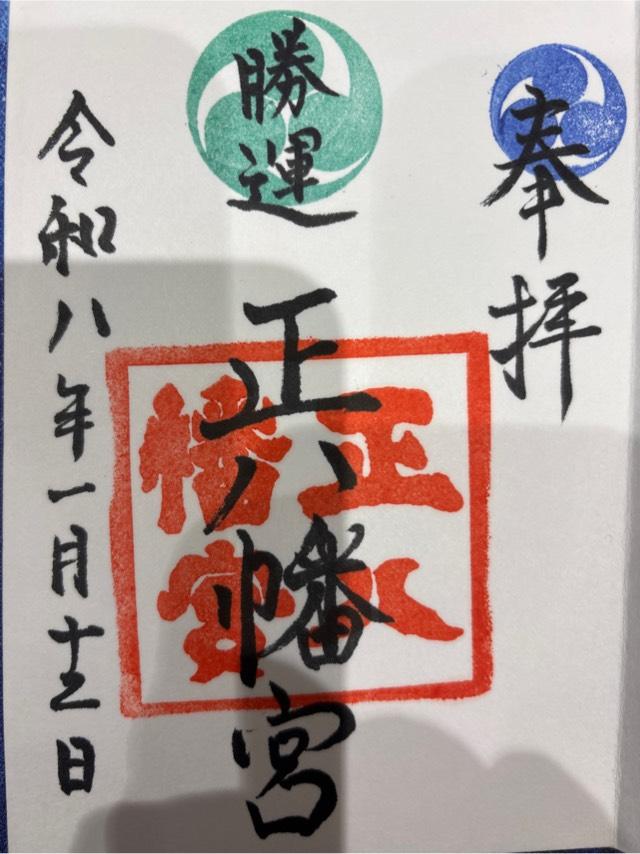 奉拝
勝運
正八幡宮
正八幡宮
令和八年一月十三日